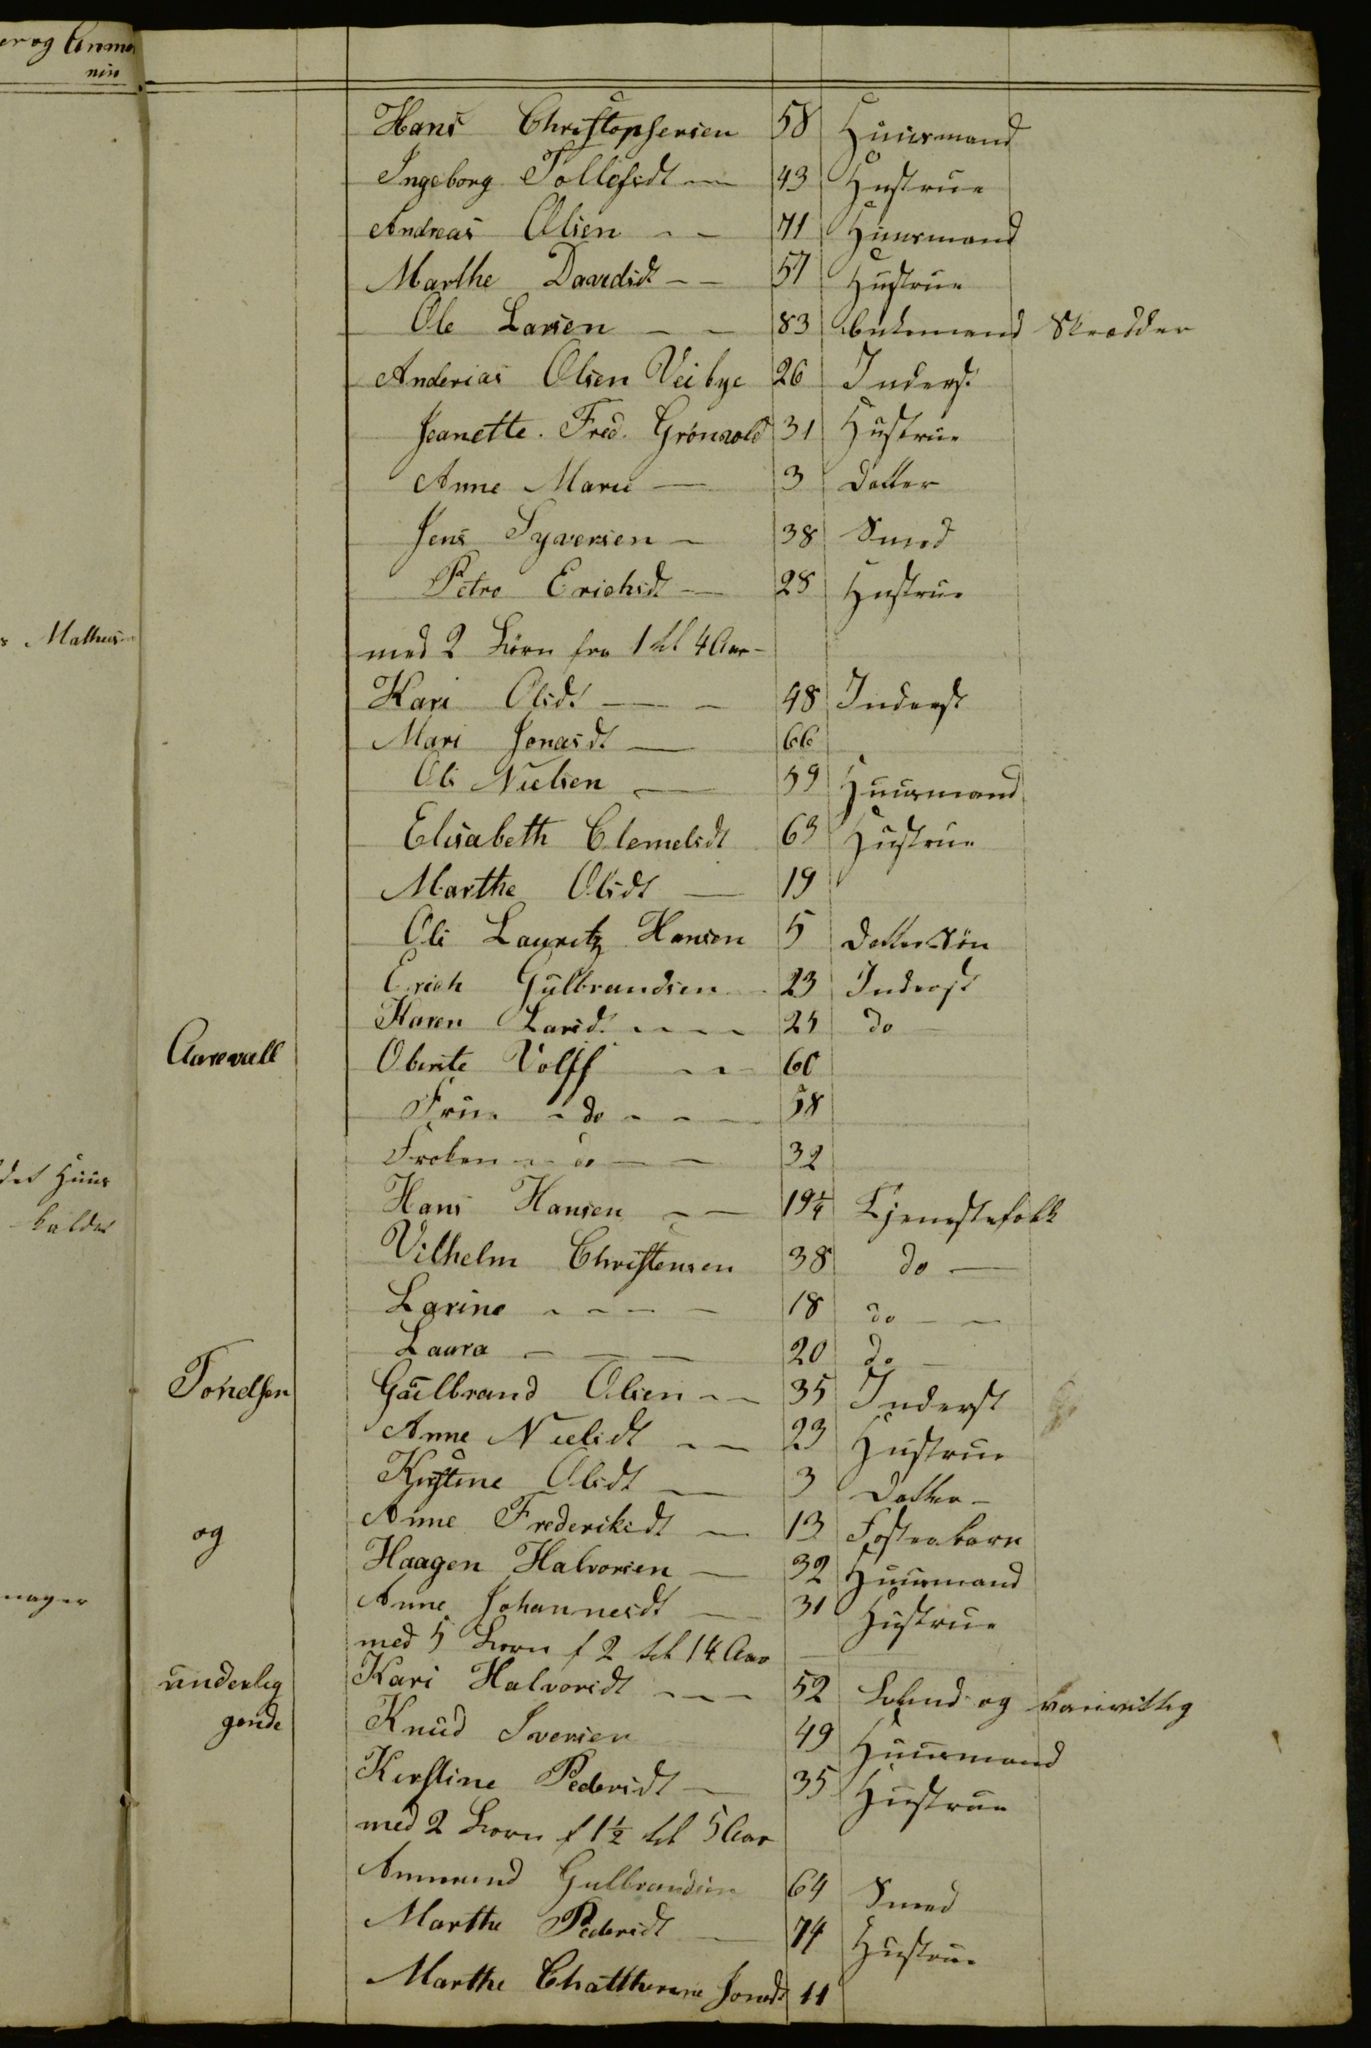 er og Anmæ
nin
s Mathus
det Huus
holdes
nager
Hans Christophersen 58 Huusmand
Ingeborg Tollefsdt — 43 Hustrue
Andreas Olsen - - 71 Huusmand
Marthe Davidsdt - - 57 Hustrue
Ole Larsen - - 83 Enkemand Skrædder
Anderias Olsen Veibye 26 Inderst
Jeanette. Fred. Grönvold 31 Hustrue
Anne Marie — 3 Datter
Jens Syversen - 38 Smed
Petro Erichsdt — 28 Hustrue
med 2 Börn fra 1 til 4 Aar -
Kari Olsdt — - 48 Inderst
Mari Jonasdt — 66
Ole Nielsen — 59 Huusmand
Elisabeth Clemetsdt 63 Hustrue
Marthe Olsdt — 19
Ole Lauritz Hansen 5 Dattersön
Erich Gulbrandsen 23 Inderst
Karen Larsdt - - - - 25 do -
Aarevall Oberste Volff - - 60
Frue - do - - - 58
Froken - do - - 32
Hans Hansen - - 19¼ Tjenestefolk
Vilhelm Christensen 38 do —
Larine - - - - 18 do - -
Laura - - - 20 do -
Tonelsen Gulbrand Olsen - - 35 Inderst
Anne Nielsdt - - 23 Hustrue
Kirstine Olsdt — 3 Datter -
og Anne Frederiksdt — 13 Fosterbarn
Haagen Halvorsen — 32 Huusmand
Anne Johannesdt — 31 Hustrue
med 5 Börn f 2 til 14 Aar
underlig Kari Halvorsdt - - - 52 blind og vanvittig
gende Knud Iversen 49 Huusmand
Kirstine Pedersdt - 35 Hustrue
med 2 Börn f 1½ til 5 Aar
Ammund Gulbrandsen 64 Smed
Marthe Pedersdt — 74 Hustrue
Marthe Chattharine Jonsdt 11